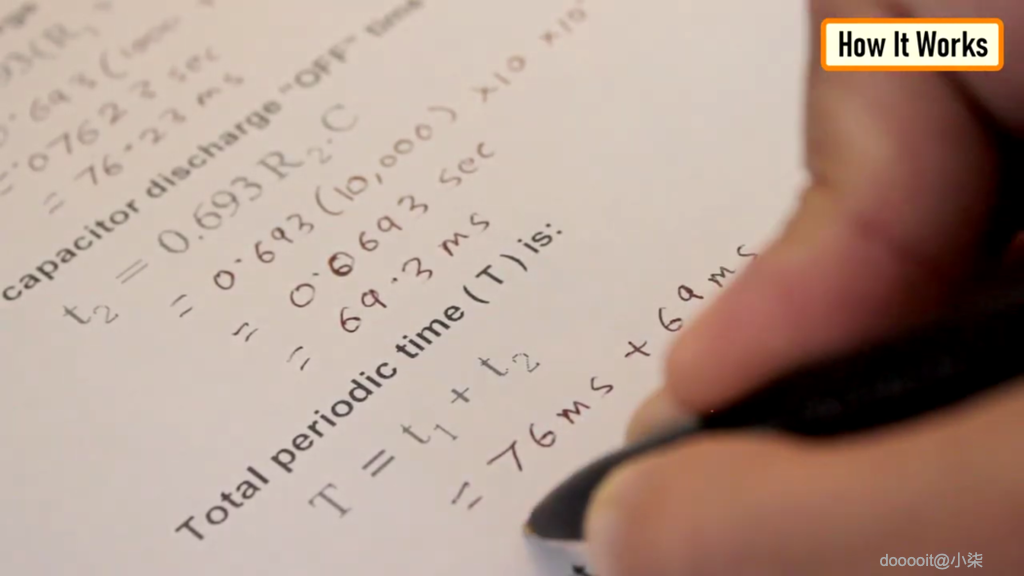 How It Works
= 0.0762 3 sec
= 76.23 ms
capacitor discharge "OFF" time
t₂ = 0.693 R₂.C
= 0.693 (10,000) ×10 ×10
= 0.0693 sec
= 69.3 ms
Total periodic time (T) is:
T = t₁ + t₂
= 76ms + 69ms
dooooit@小柒